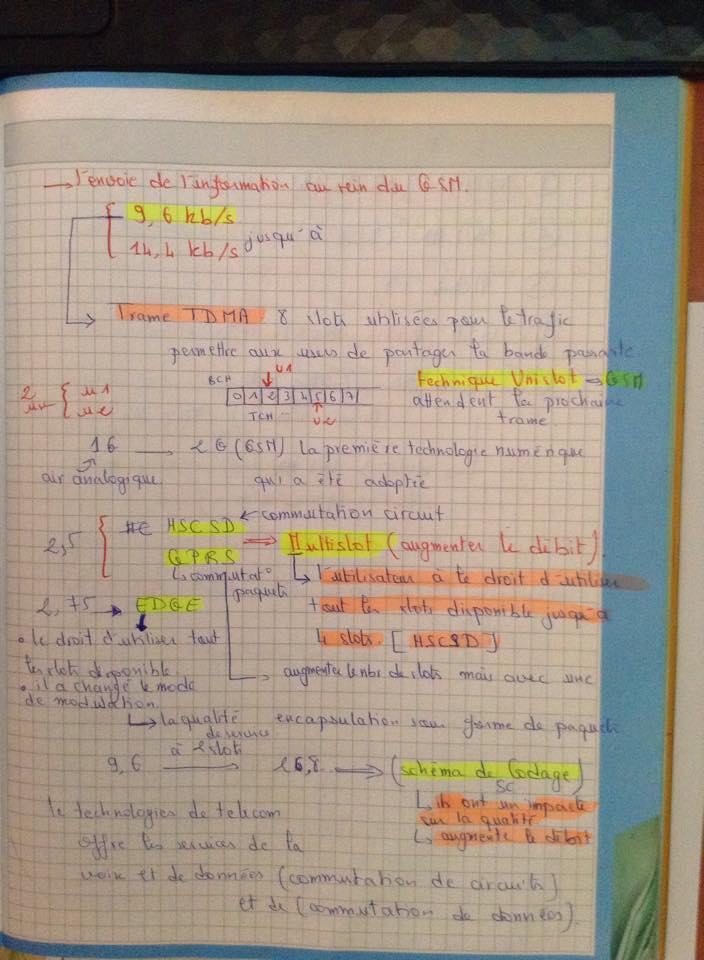 → l'envoie de l'information au sein du GSM.
9,6 kb/s
14,4 kb/s jusqu'à
Trame TDMA 8 slots utilisées pour le trafic
permettre aux users de partager la bande passante
U1
BCH
technique Unislot ⇒ GSM
2 { u1
u2
0 1 2 3 4 5 6 7
attendent la prochaine
TCH ...
U2
trame
1G → 2G (GSM) la première technologie numérique
air analogique qui a été adoptée
HSCSD ← commutation circuit
2,5 GPRS ⇒ Multislot (augmenter le débit).
↳ commutat° paquets
↳ l'utilisateur à le droit d'utiliser
2,75 → EDGE
tout les slots disponible jusqu'a
4 slots [HSCSD]
• le droit d'utiliser tout
les slots disponible.
augmenter le nbr de slots mais avec une
• il a changé le mode
de modulation.
↳ la qualité de service
encapsulation sous forme de paquets
9,6 à 2 slots → 26,8 ⇒ (schéma de Codage)
SC
↳ ils ont un impacte
sur la qualité
↳ augmente le débit
le technologies de telecom
offre les services de la
voix et de données (commutation de circuits)
et de (commutation de données).